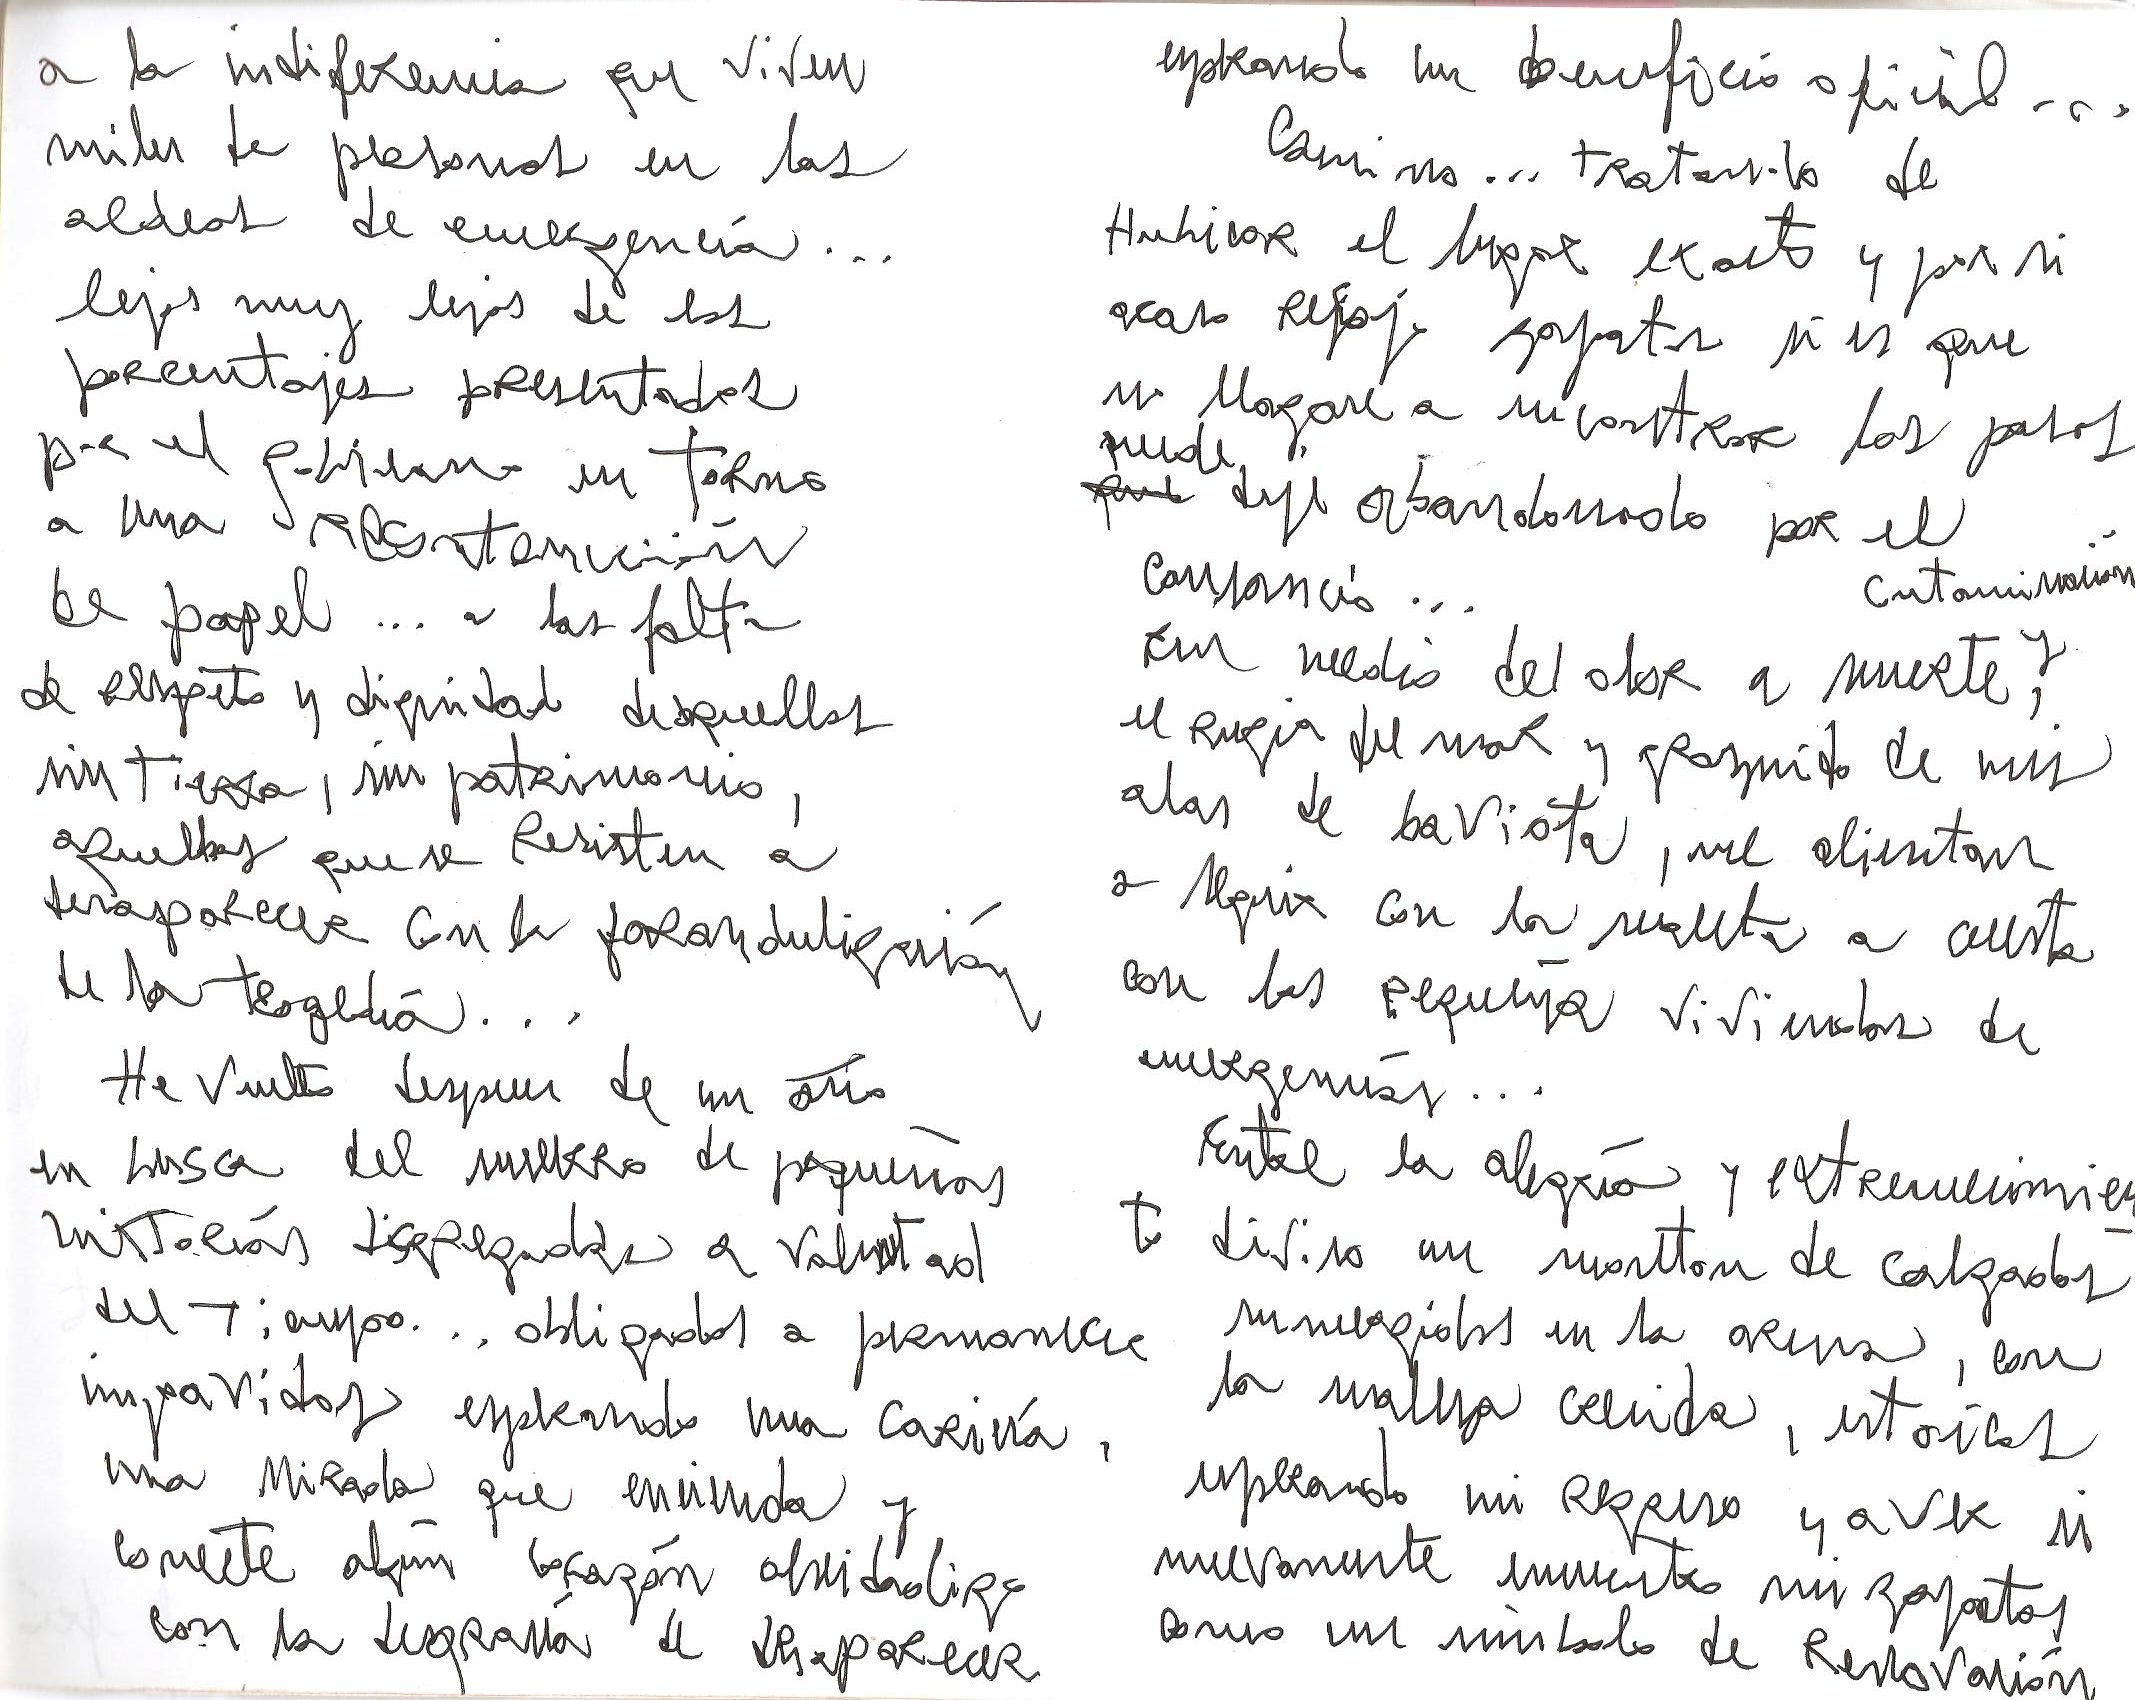 a la indiferencia que viven
miles de personas en las
aldeas de emergencia...
lejos muy lejos de los
porcentajes presentados
por el gobierno en torno
a una reconstrucción
de papel ... a las falta
de respeto y dignidad de aquellos
sin tierra, sin patrimonio,
aquellos que se resisten a
desaparecer con la farandulización
de la tragedia...
He vuelto despues de un año
en busca del susurro de pequeñas
historias disgregadas a voluntad
del tiempo... obligados a permanecer
impavidos esperando una caricia,
una mirada que encienda y
conecte algún corazón olvidadizo
con la desgracia de desaparecer
esperando un beneficio oficial ...
Camino ... tratando de
Hubicar el lugar exacto y por si
acaso reflejo zapatos si es que
no llegase a encontrar los pasos
que deje abandonado por el
cansancio ...
En medio del olor a muerte, y contaminación
el rugir del mar y graznido de mis
alas de gaviota, me alientan
a seguir con la maleta a cuesta
con las pequeña viviendas de
emergencias ...
Entre la alegria y extremecimien
to diviso un montton de calzados
sumergidos en la arena, con
la maleza crecida, estoicos
esperando mi regreso y a ver si
nuevamente encuentro mi zapatos
como un simbolo de renovación